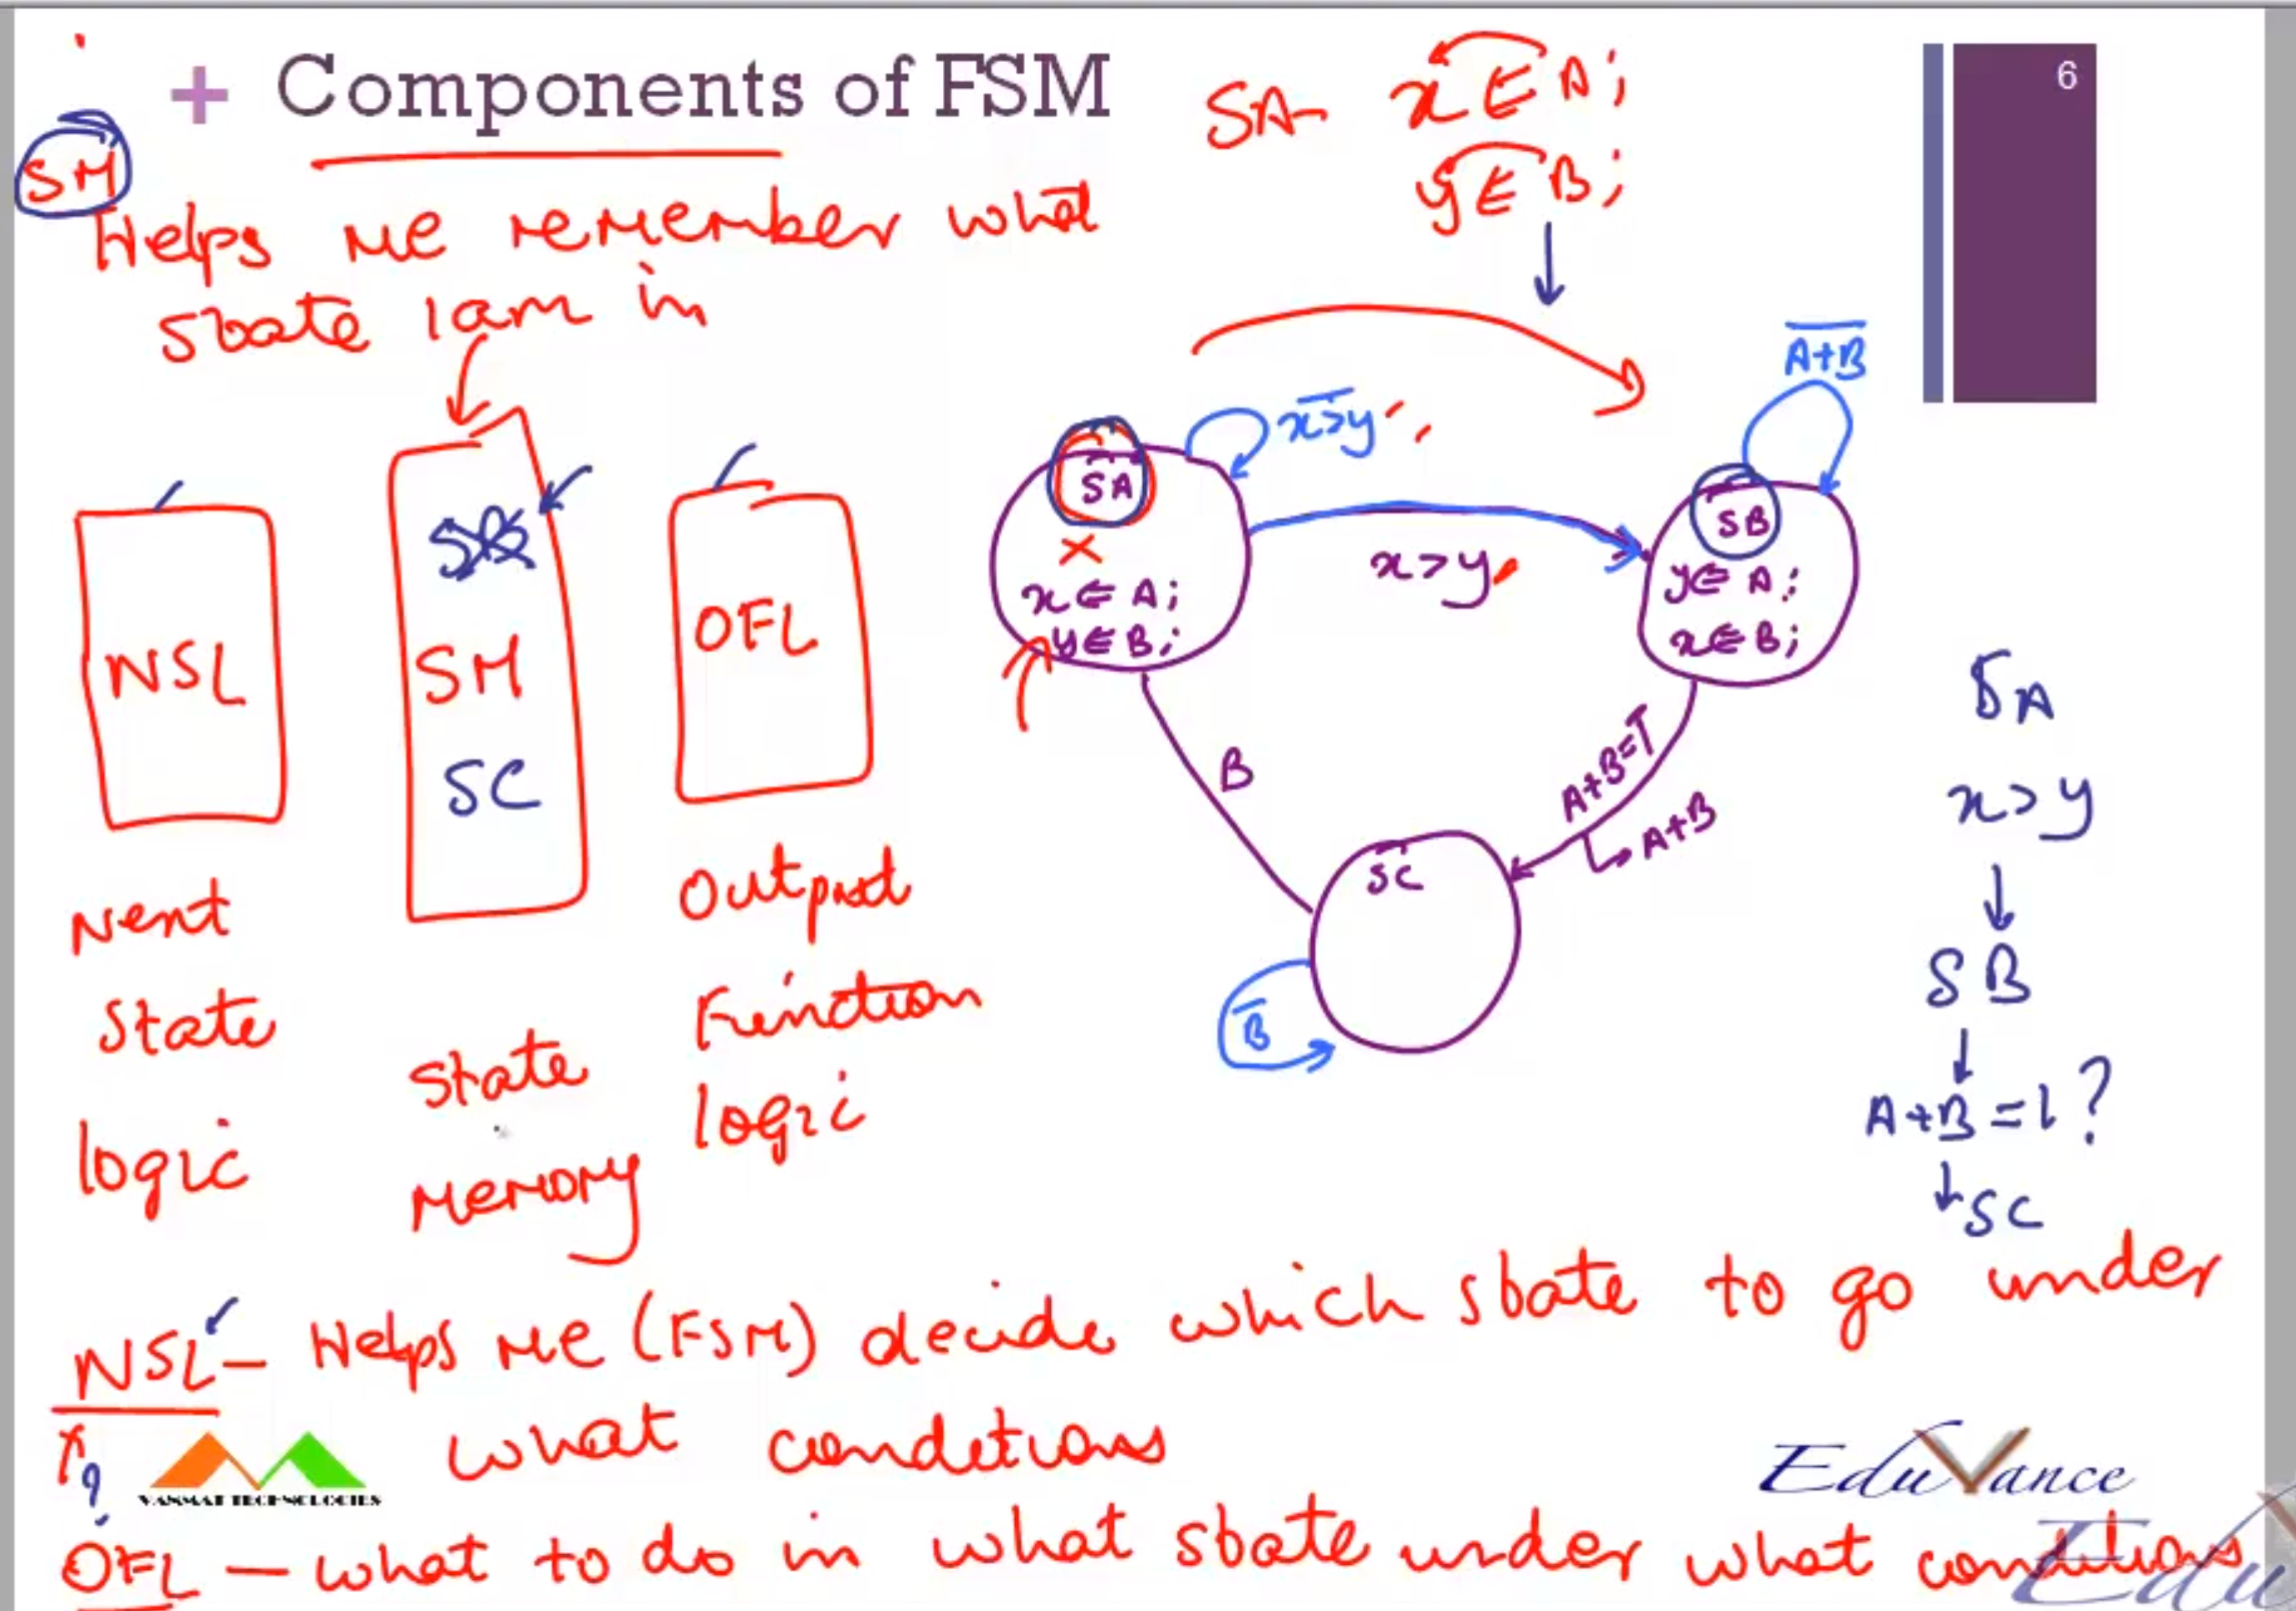 + Components of FSM
6
SA- x ⇐ A;
y ⇐ B;
SM
Helps me remember what
state I am in
NSL
SM
SC
OFL
Next
State
logic
State
Memory
Output
Function
logic
SA
x ⇐ A;
y ⇐ B;
x>y
x>y
A+B
SB
y ⇐ A;
x ⇐ B;
B
A+B=T
A+B
SC
B
SA
x>y
↓
SB
↓
A+B=1?
↓SC
NSL – Helps me (FSM) decide which state to go under
what conditions
VANMAT TECHNOLOGIES
EduVance
OFL – what to do in what state under what conditions
Edu